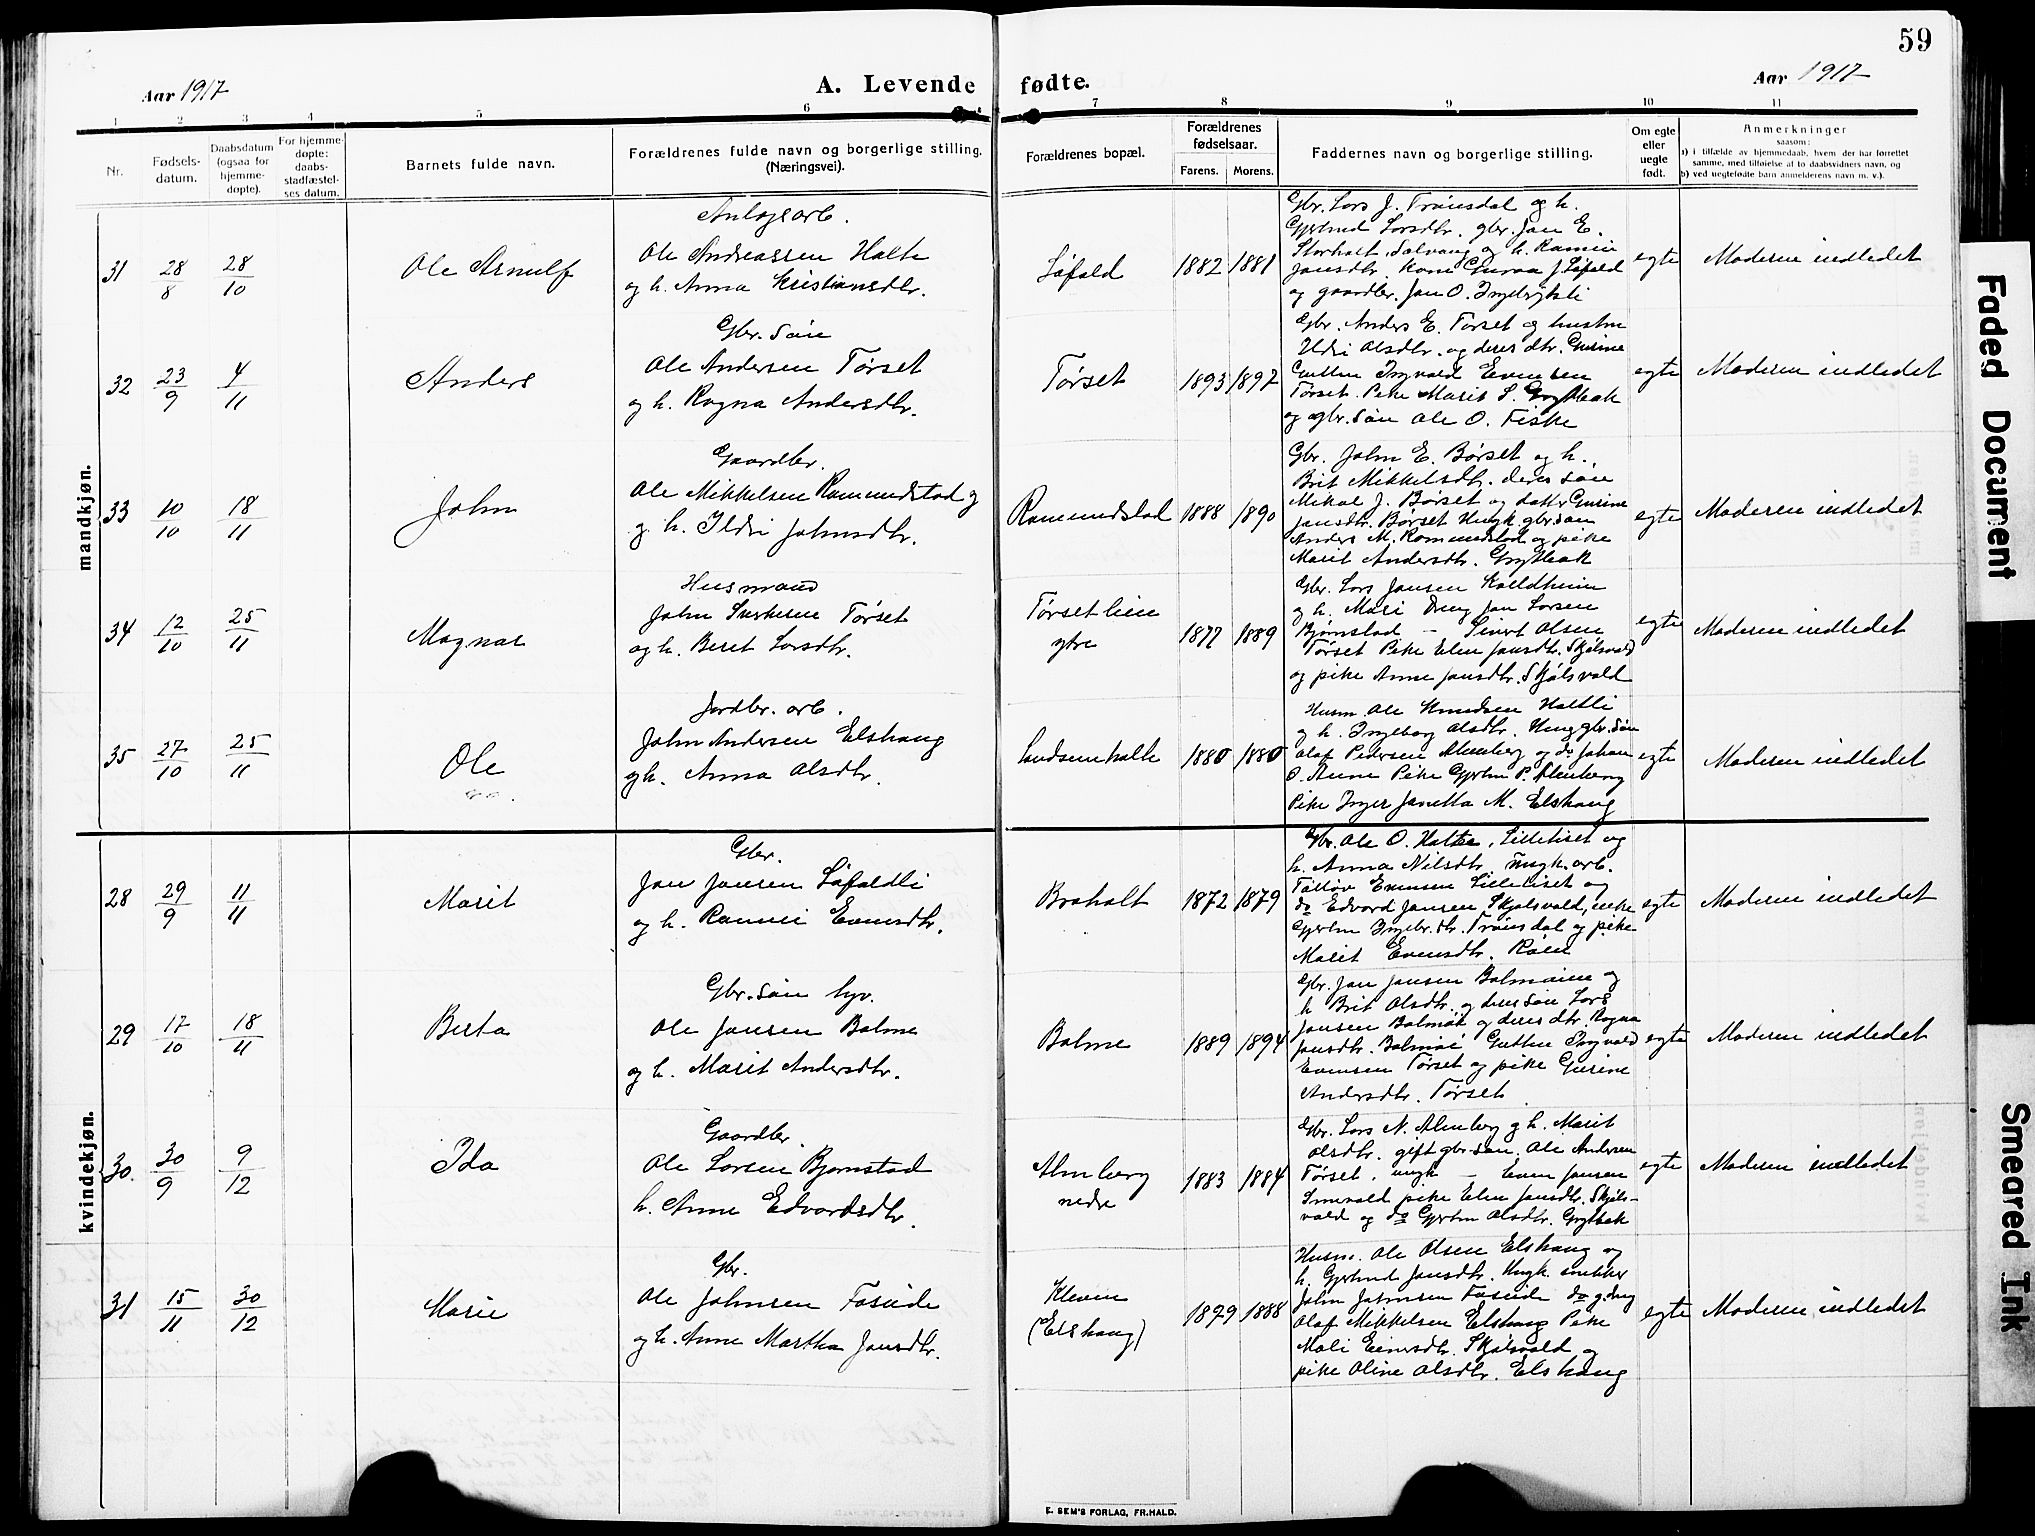 59
Aar 1917
A. Levende fødte.
Aar 1917
1 2 3 4 5 6 7 8 9 10 11
Nr.
Fødsels-
datum.
Daabsdatum
(ogsaa for
hjemme-
døpte).
For hjemme-
døpte:
daabs-
stadfæstel-
ses datum.
Barnets fulde navn.
Forældrenes fulde navn og borgerlige stilling.
(Næringsvei).
Forældrenes bopæl.
Forældrenes
fødselsaar.
Farens. Morens.
Faddernes navn og borgerlige stilling.
Om egte
eller
uegte
født.
Anmerkninger
saasom:
a) i tilfælde av hjemmedaab, hvem der har forrettet
samme, med tilføielse af to daabsvidners navn, og
b) ved uegtefødte barn anmelderens navn m. v.).
mandkjøn.
31 28/8 28/10 Ole Arnulf
Anlægsarb.
Ole Andreassen Halte
og h. Anna Kristiansdtr.
Løfald
1882 1881
Gbr. Lars J. Trønsdal og h.
Gjertrud Larsdtr. gbr. Jan E.
Storholt, Salvang og h.
Jansdtr. Kone Guroa J. Løfald
og gaardbr. Jan O.
egte
Moderen indledet
32 23/9 4/11 Anders
Gbr. søn
Ole Andersen Tørset
og h. Ragna Andersdtr.
Tørset
1893 1897
Gbr. Anders E. Tørset og hustru
Ildri Olsdtr. og deres dtr. Gurine
Gutten Ingvald Evensen
Tørset. Pike Marit L. Grytbak
og gbr. søn Ole O. Fiske
egte
Moderen indledet
33 10/10 18/11 John
Gaardbr.
Ole Mikkelsen Romundstad
og h. Ildri Johnsdtr.
Romundstad
1888 1890
Gbr. John E. Børset og h.
Brit Mikkelsdtr. deres søn
Mikal J. Børset og datter Gurine
Jansdtr. Børset Ungk. gbr. søn
Anders M. Romundstad og pike
Marit Andersdtr. Grytbak
egte
Moderen indledet
34 12/10 25/11 Magnar
Husmand
John Sverkesen Tørset
og h. Beret Larsdtr.
Tørsetlien
ytre
1877 1889
Gbr. Lars Jansen Kveldheim
og h. Mari Dreng Jan Larsen
Bjørnstad – Sivert Olsen
Tørset Pike Elen Jansdtr. Skjølsvold
og pike Anne Jansdtr. Skjølsvold
egte
Moderen indledet
35 27/10 25/11 Ole
Jordbr. arb.
John Andersen Elshaug
og h. Anna Olsdtr.
1880 1880
Husm. Ole Knudsen Haltli
og h. Ingeborg Olsdtr. Ung gbr. søn
Olaf Pedersen Almberg og do Johan
O. Pike Gjertru P. Almberg
Pike Inger Janetta M. Elshaug
egte
Moderen indledet
kvindekjøn.
28 29/9 11/11 Marit
Gbr.
Jan Jansen Løfaldli
og h. Rannei Evensdtr.
Braholt
1872 1879
Gbr. Ole O. Halten, Lilleliset og
h. Anna Nilsdtr. Ungk. arb.
Tolløv Evensen Lilleliset og
do Edvard Jansen Skjølsvold, enke
Gjertru Ingebr.dtr. Trønsdal og pike
Marit Evensdtr. Røen
egte
Moderen indledet
29 17/10 18/11 Berta
Gbr. søn
Ole Jansen Bolme
og h. Marit Andersdtr.
Bolme
1889 1894
Gbr. Jan Jansen Bolmøien og
h Brit Olsdtr. og deres søn Lars
Jansen Bolmøi og deres dtr. Ragna
Jansdtr. Bolmøi Gutten Ingvald
Evensen Tørset og pike Gurine
Andersdtr. Tørset.
egte
Moderen indledet
30. 30/9 9/12 Ida
Gaardbr.
Ole Larsen Bjørnstad
h. Anne Edvardsdtr.
Almberg
nedre
1883 1884
Gbr. Lars N. Almberg og h. Marit
Olsdtr. gift gbr. søn. Ole Andersen
Tørset. ungk – Even Jansen
pike Elen Jansdtr. Skjøls-
vold og do Gjertru Olsdtr. Grytbak
egte
Moderen indledet
31 15/11 30/12 Marie
Gbr.
Ole Johnsen Foseide
og h. Anne Martha Jansdtr.
Kleven
(Elshaug)
1879 1888
Husm. Ole Olsen Elshaug og
h. Gjertrud Jansdtr. Ungk. snekker
John Johnsen Foseide do g.dreng
Olaf Mikkelsen Elshaug Pike
Mali Einersdtr. Skjølsvold og
pike Oline Olsdtr. Elshaug
egte
Moderen indledet
E. SEM'S FORLAG, FR.HALD.
Faded Document
Smeared Ink